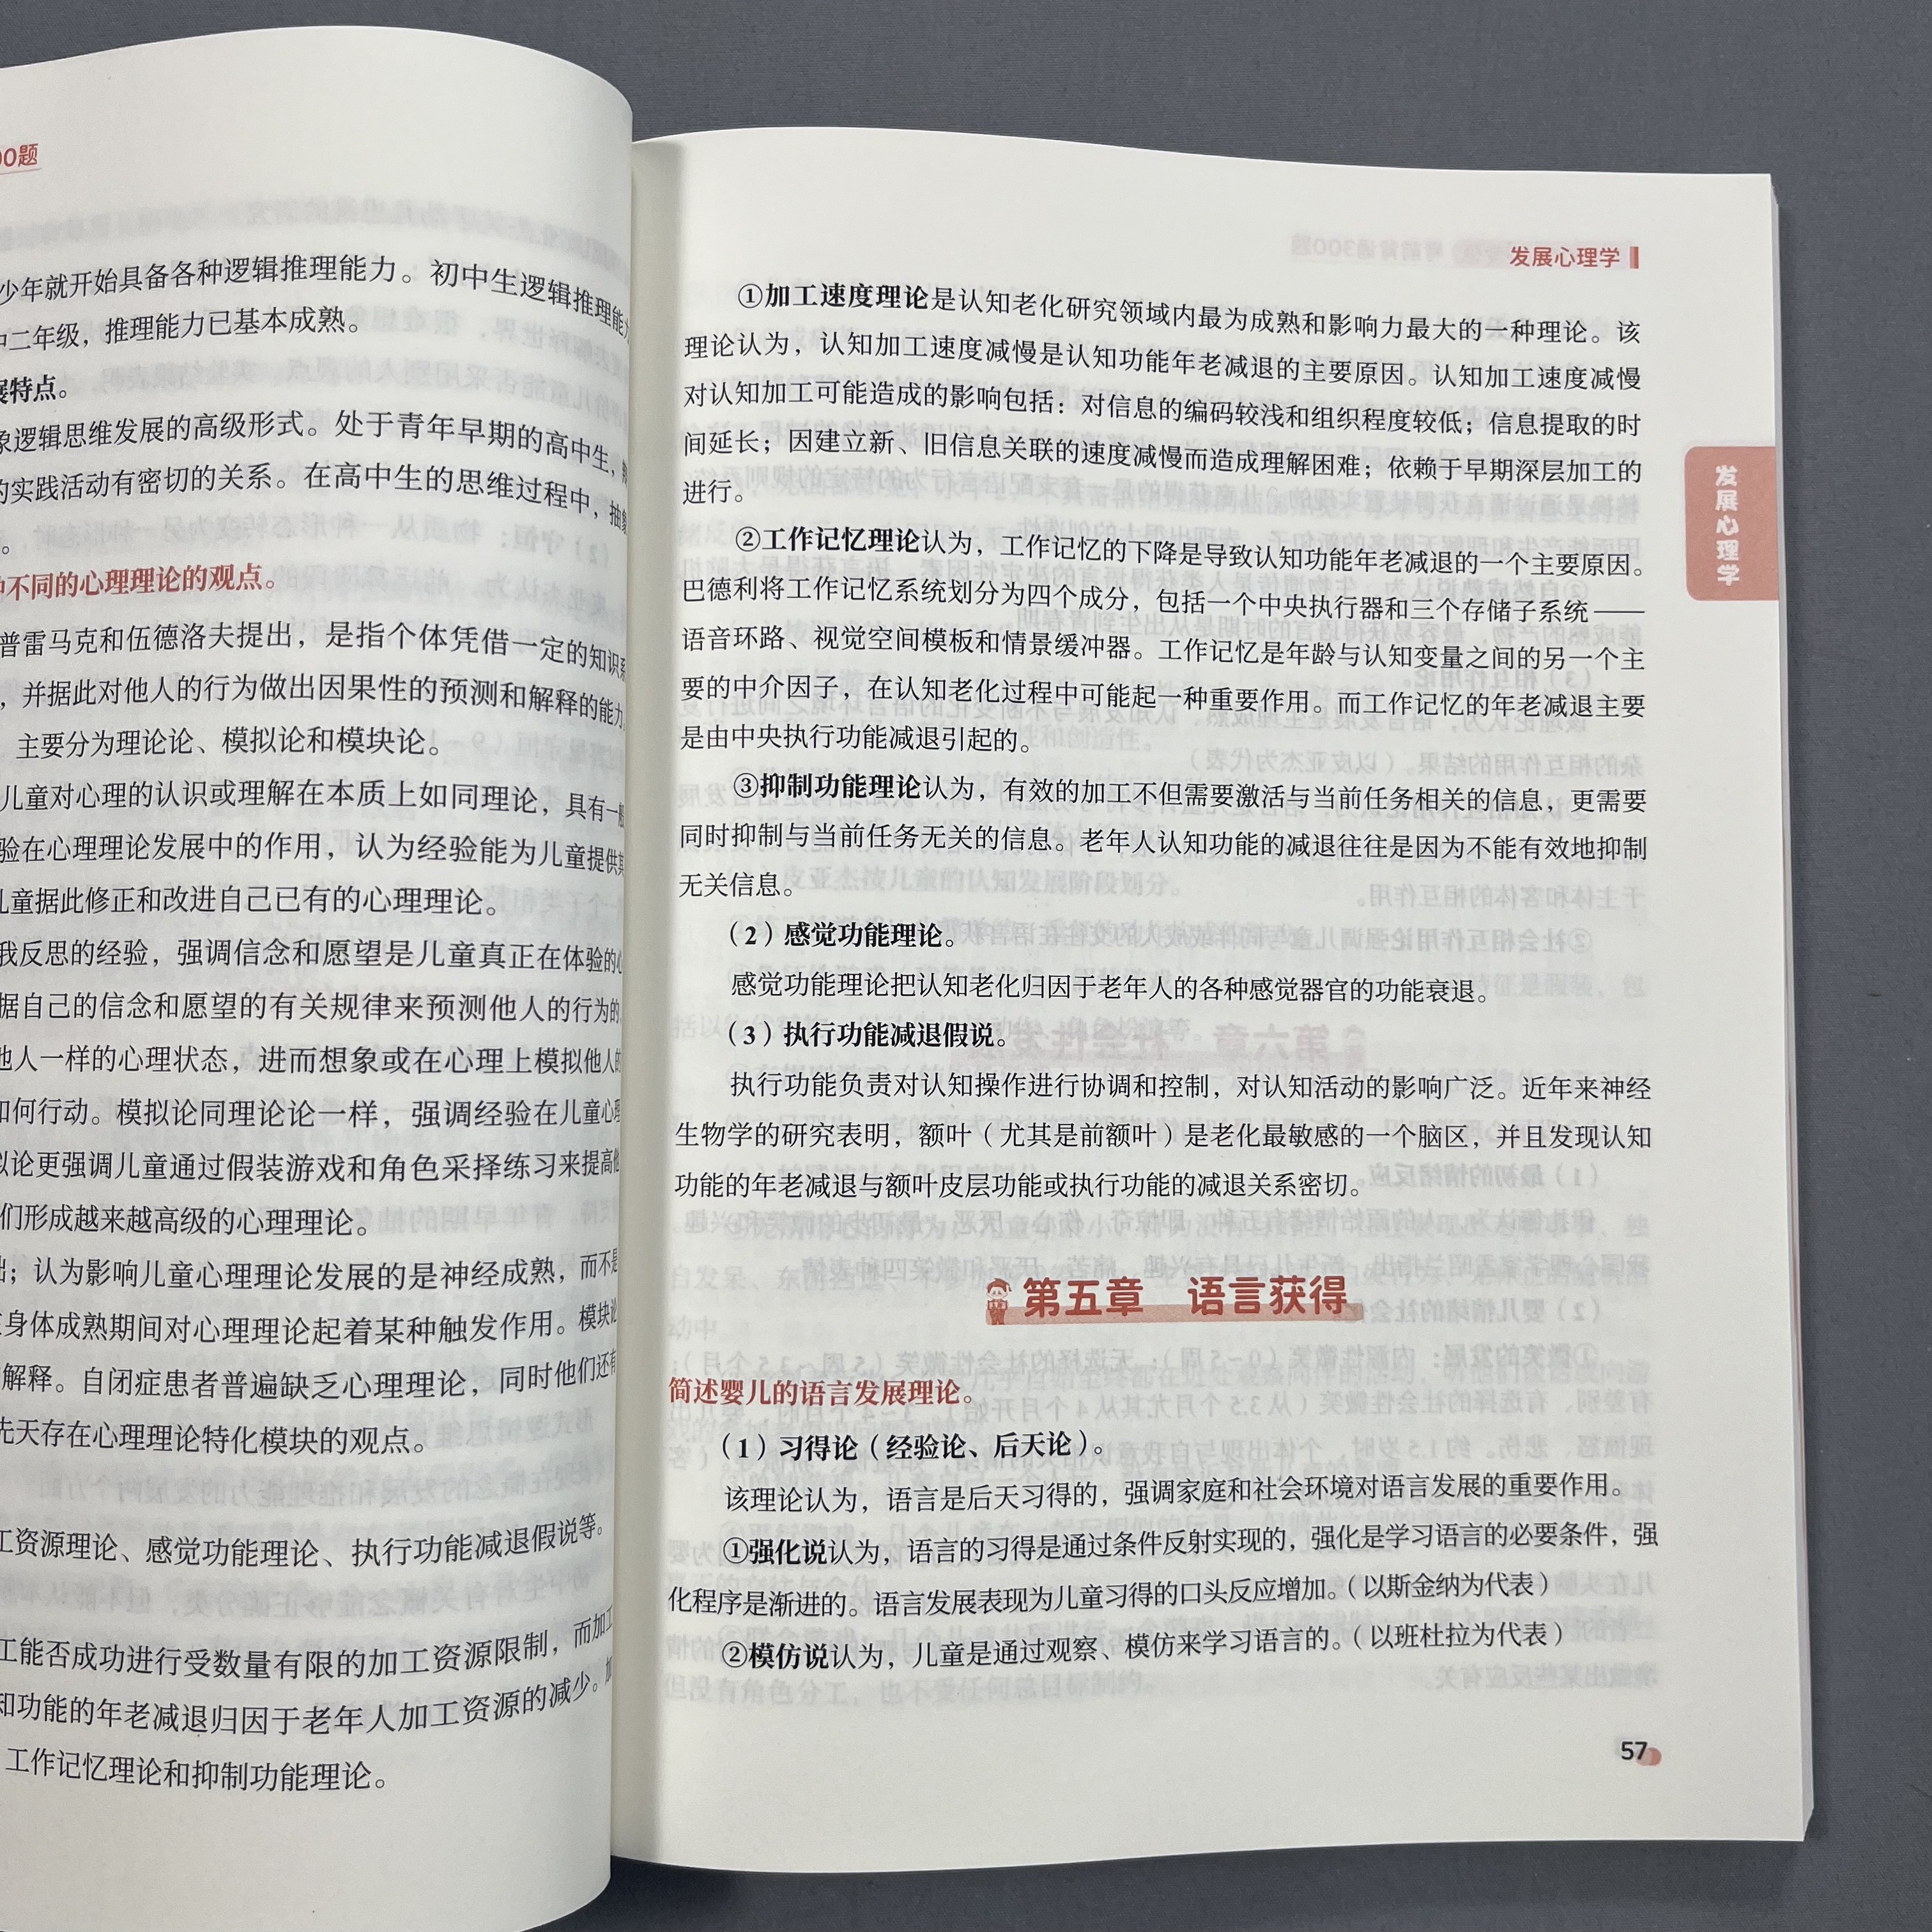 00题
少年就开始具备各种逻辑推理能力。初中生逻辑推理能
中二年级，推理能力已基本成熟。
展特点。
象逻辑思维发展的高级形式。处于青年早期的高中生，
的实践活动有密切的关系。在高中生的思维过程中，抽象
。
不同的心理理论的观点。
普雷马克和伍德洛夫提出，是指个体凭借一定的知识系
，并据此对他人的行为做出因果性的预测和解释的能力
主要分为理论论、模拟论和模块论。
儿童对心理的认识或理解在本质上如同理论，具有一般
验在心理理论发展中的作用，认为经验能为儿童提供其
儿童据此修正和改进自己已有的心理理论。
我反思的经验，强调信念和愿望是儿童真正在体验的心
据自己的信念和愿望的有关规律来预测他人的行为的。
他人一样的心理状态，进而想象或在心理上模拟他人的
如何行动。模拟论同理论论一样，强调经验在儿童心理
拟论更强调儿童通过假装游戏和角色采择练习来提高他
们形成越来越高级的心理理论。
；认为影响儿童心理理论发展的是神经成熟，而不是
身体成熟期间对心理理论起着某种触发作用。模块论
解释。自闭症患者普遍缺乏心理理论，同时他们还有
先天存在心理理论特化模块的观点。
工资源理论、感觉功能理论、执行功能减退假说等。
工能否成功进行受数量有限的加工资源限制，而加工
知功能的年老减退归因于老年人加工资源的减少。加
工作记忆理论和抑制功能理论。
发展心理学
①加工速度理论是认知老化研究领域内最为成熟和影响力最大的一种理论。该
理论认为，认知加工速度减慢是认知功能年老减退的主要原因。认知加工速度减慢
对认知加工可能造成的影响包括：对信息的编码较浅和组织程度较低；信息提取的时
间延长；因建立新、旧信息关联的速度减慢而造成理解困难；依赖于早期深层加工的
进行。
②工作记忆理论认为，工作记忆的下降是导致认知功能年老减退的一个主要原因。
巴德利将工作记忆系统划分为四个成分，包括一个中央执行器和三个存储子系统——
语音环路、视觉空间模板和情景缓冲器。工作记忆是年龄与认知变量之间的另一个主
要的中介因子，在认知老化过程中可能起一种重要作用。而工作记忆的年老减退主要
是由中央执行功能减退引起的。
③抑制功能理论认为，有效的加工不但需要激活与当前任务相关的信息，更需要
同时抑制与当前任务无关的信息。老年人认知功能的减退往往是因为不能有效地抑制
无关信息。
（2）感觉功能理论。
感觉功能理论把认知老化归因于老年人的各种感觉器官的功能衰退。
（3）执行功能减退假说。
执行功能负责对认知操作进行协调和控制，对认知活动的影响广泛。近年来神经
生物学的研究表明，额叶（尤其是前额叶）是老化最敏感的一个脑区，并且发现认知
功能的年老减退与额叶皮层功能或执行功能的减退关系密切。
第五章 语言获得
简述婴儿的语言发展理论。
（1）习得论（经验论、后天论）。
该理论认为，语言是后天习得的，强调家庭和社会环境对语言发展的重要作用。
①强化说认为，语言的习得是通过条件反射实现的，强化是学习语言的必要条件，强
化程序是渐进的。语言发展表现为儿童习得的口头反应增加。（以斯金纳为代表）
②模仿说认为，儿童是通过观察、模仿来学习语言的。（以班杜拉为代表）
57
发展心理学